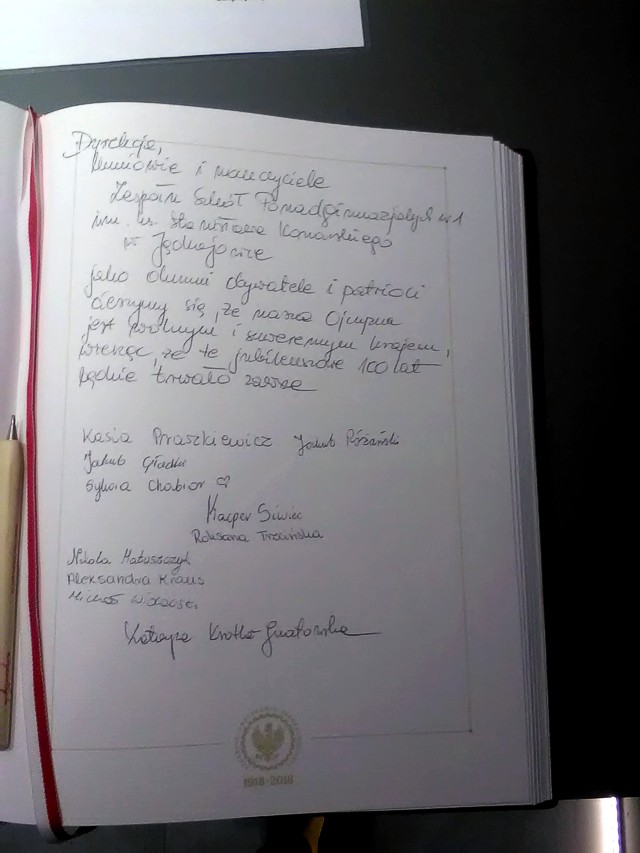 Dyrekcja,
Uczniowie i nauczyciele
Zespołu Szkół Ponadgimnazjalnych nr 1
im. ks. Stanisława Konarskiego
w Jędrzejowie
jako dumni obywatele i patrioci
cieszymy się, że nasza Ojczyzna
jest wolnym i suwerennym krajem,
wierząc, że te jubileuszowe 100 lat
będzie trwało zawsze
Kasia Praszkiewicz Jakub Różański
Jakub Gładki
Sylwia Chabior
Kacper Siwiec
Roksana Trzcińska
Nikola Matuszczyk
Aleksandra Kraus
Michał
Katarzyna Krotko Gwiatowska
1918-2018